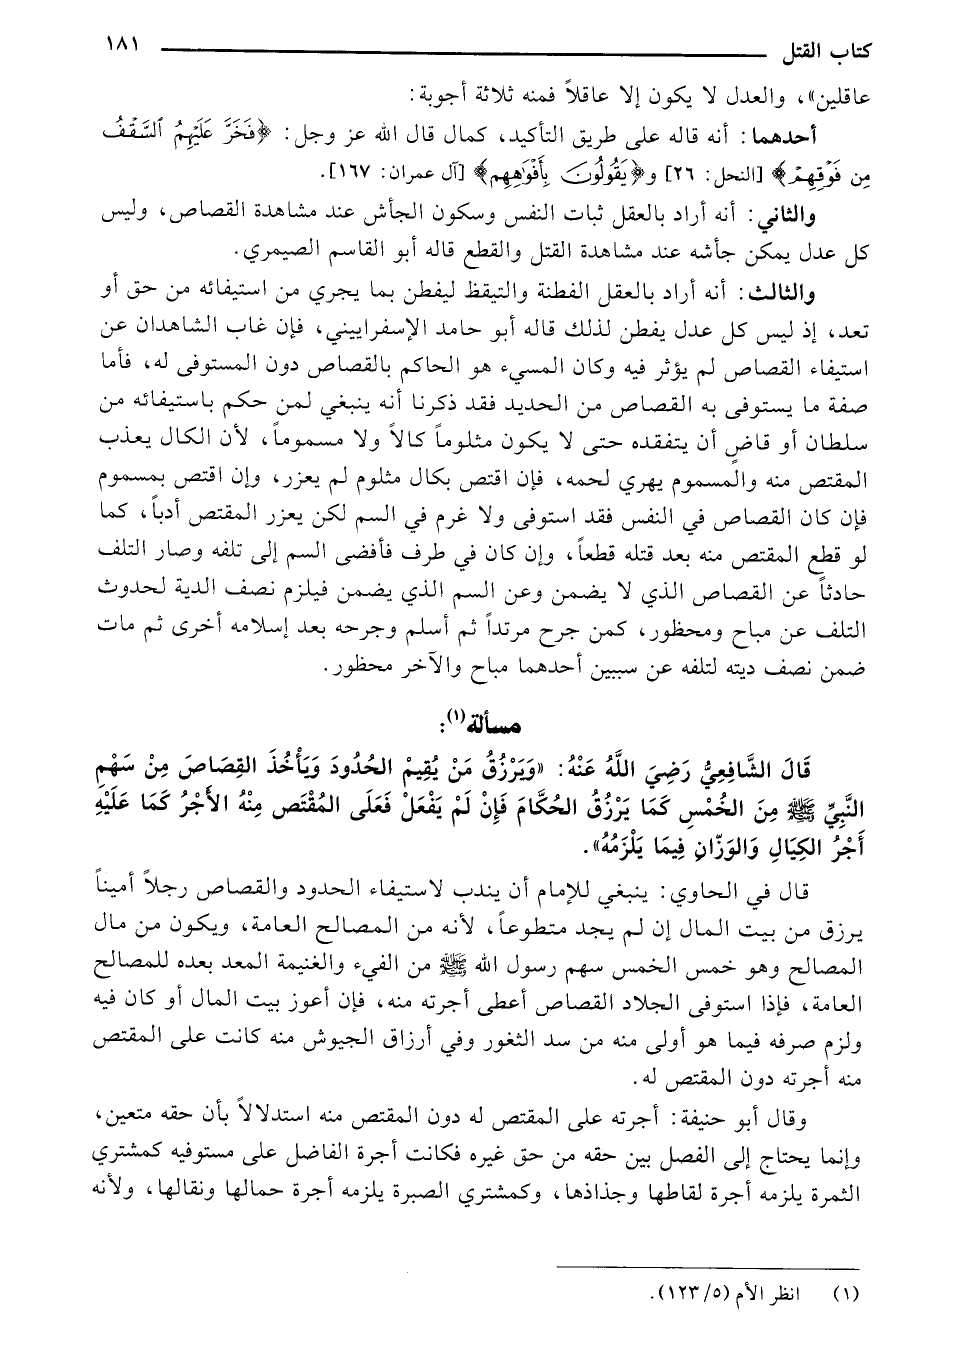 كتاب القتل ١٨١
عاقلين»، والعدل لا يكون إلا عاقلاً فمنه ثلاثة أجوبة:
أحدهما: أنه قاله على طريق التأكيد، كمال قال الله عز وجل: ﴿فَخَرَّ عَلَيْهِمُ ٱلسَّقْفُ
مِن فَوْقِهِمْ﴾ [النحل: ٢٦] و﴿يَقُولُونَ بِأَفْوَاهِهِم﴾ [آل عمران: ١٦٧].
والثاني: أنه أراد بالعقل ثبات النفس وسكون الجأش عند مشاهدة القصاص، وليس
كل عدل يمكن جأشه عند مشاهدة القتل والقطع قاله أبو القاسم الصيمري.
والثالث: أنه أراد بالعقل الفطنة والتيقظ ليفطن بما يجري من استيفائه من حق أو
تعد، إذ ليس كل عدل يفطن لذلك قاله أبو حامد الإسفراييني، فإن غاب الشاهدان عن
استيفاء القصاص لم يؤثر فيه وكان المسيء هو الحاكم بالقصاص دون المستوفى له، فأما
صفة ما يستوفى به القصاص من الحديد فقد ذكرنا أنه ينبغي لمن حكم باستيفائه من
سلطان أو قاضٍ أن يتفقده حتى لا يكون مثلوماً كالاً ولا مسموماً، لأن الكال يعذب
المقتص منه والمسموم يهري لحمه، فإن اقتص بكال مثلوم لم يعزر، وإن اقتص بمسموم
فإن كان القصاص في النفس فقد استوفى ولا غرم في السم لكن يعزر المقتص أدباً، كما
لو قطع المقتص منه بعد قتله قطعاً، وإن كان في طرف فأفضى السم إلى تلفه وصار التلف
حادثاً عن القصاص الذي لا يضمن وعن السم الذي يضمن فيلزم نصف الدية لحدوث
التلف عن مباح ومحظور، كمن جرح مرتداً ثم أسلم وجرحه بعد إسلامه أخرى ثم مات
ضمن نصف ديته لتلفه عن سببين أحدهما مباح والآخر محظور.
مسألة(١):
قَالَ الشَّافِعِيُّ رَضِيَ اللَّهُ عَنْهُ: «وَيَرْزُقُ مَنْ يُقِيمُ الحُدُودَ وَيَأْخُذَ القِصَاصَ مِنْ سَهْمِ
النَّبِيِّ ﷺ مِنَ الخُمْسِ كَمَا يَرْزُقُ الحُكَّامَ فَإِنْ لَمْ يَفْعَلْ فَعَلَى المُقْتَص مِنْهُ الأَجْرُ كَمَا عَلَيْهِ
أَجْرُ الكِيَالِ وَالوَزّانِ فِيمَا يَلْزَمُهُ».
قال في الحاوي: ينبغي للإمام أن يندب لاستيفاء الحدود والقصاص رجلاً أميناً
يرزق من بيت المال إن لم يجد متطوعاً، لأنه من المصالح العامة، ويكون من مال
المصالح وهو خمس الخمس سهم رسول الله ﷺ من الفيء والغنيمة المعد بعده للمصالح
العامة، فإذا استوفى الجلاد القصاص أعطى أجرته منه، فإن أعوز بيت المال أو كان فيه
ولزم صرفه فيما هو أولى منه من سد الثغور وفي أرزاق الجيوش منه كانت على المقتص
منه أجرته دون المقتص له.
وقال أبو حنيفة: أجرته على المقتص له دون المقتص منه استدلالاً بأن حقه متعين،
وإنما يحتاج إلى الفصل بين حقه من حق غيره فكانت أجرة الفاضل على مستوفيه كمشتري
الثمرة يلزمه أجرة لقاطها وجذاذها، وكمشتري الصبرة يلزمه أجرة حمالها ونقالها، ولأنه
(١) انظر الأم (٥/١٢٣).